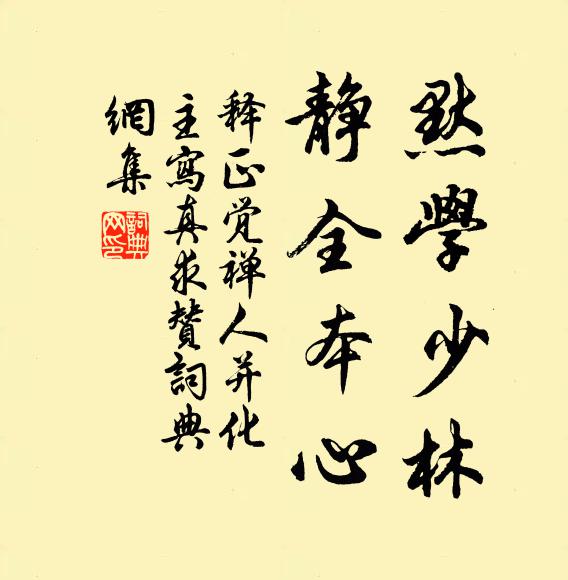 默學少林
静全本心
释正觉禅人并化
主寫真求贊詞典
網集
詞典
网印